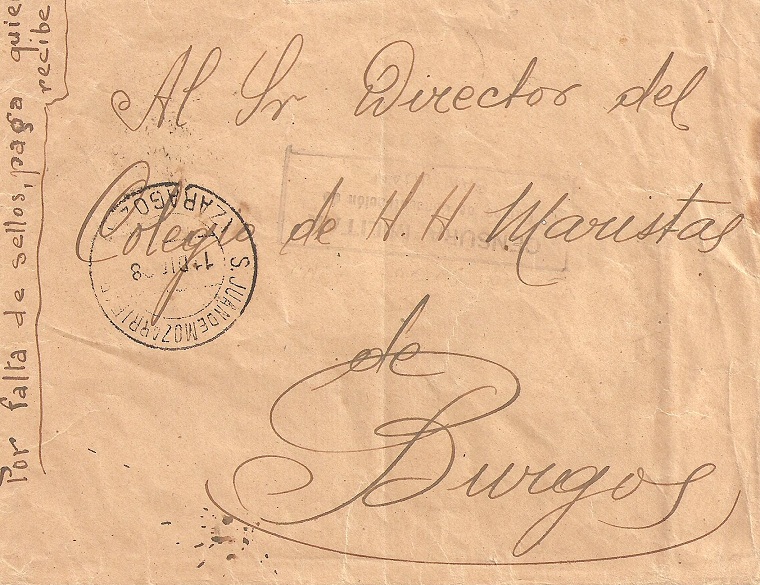 Al Sr Director del
Colegio de H. H. Maristas
de
Burgos
Por falta de sellos, paga quien
recibe
S. JUAN DE MOZARRIFAR
ZARAGOZA
CENSURA MILITAR